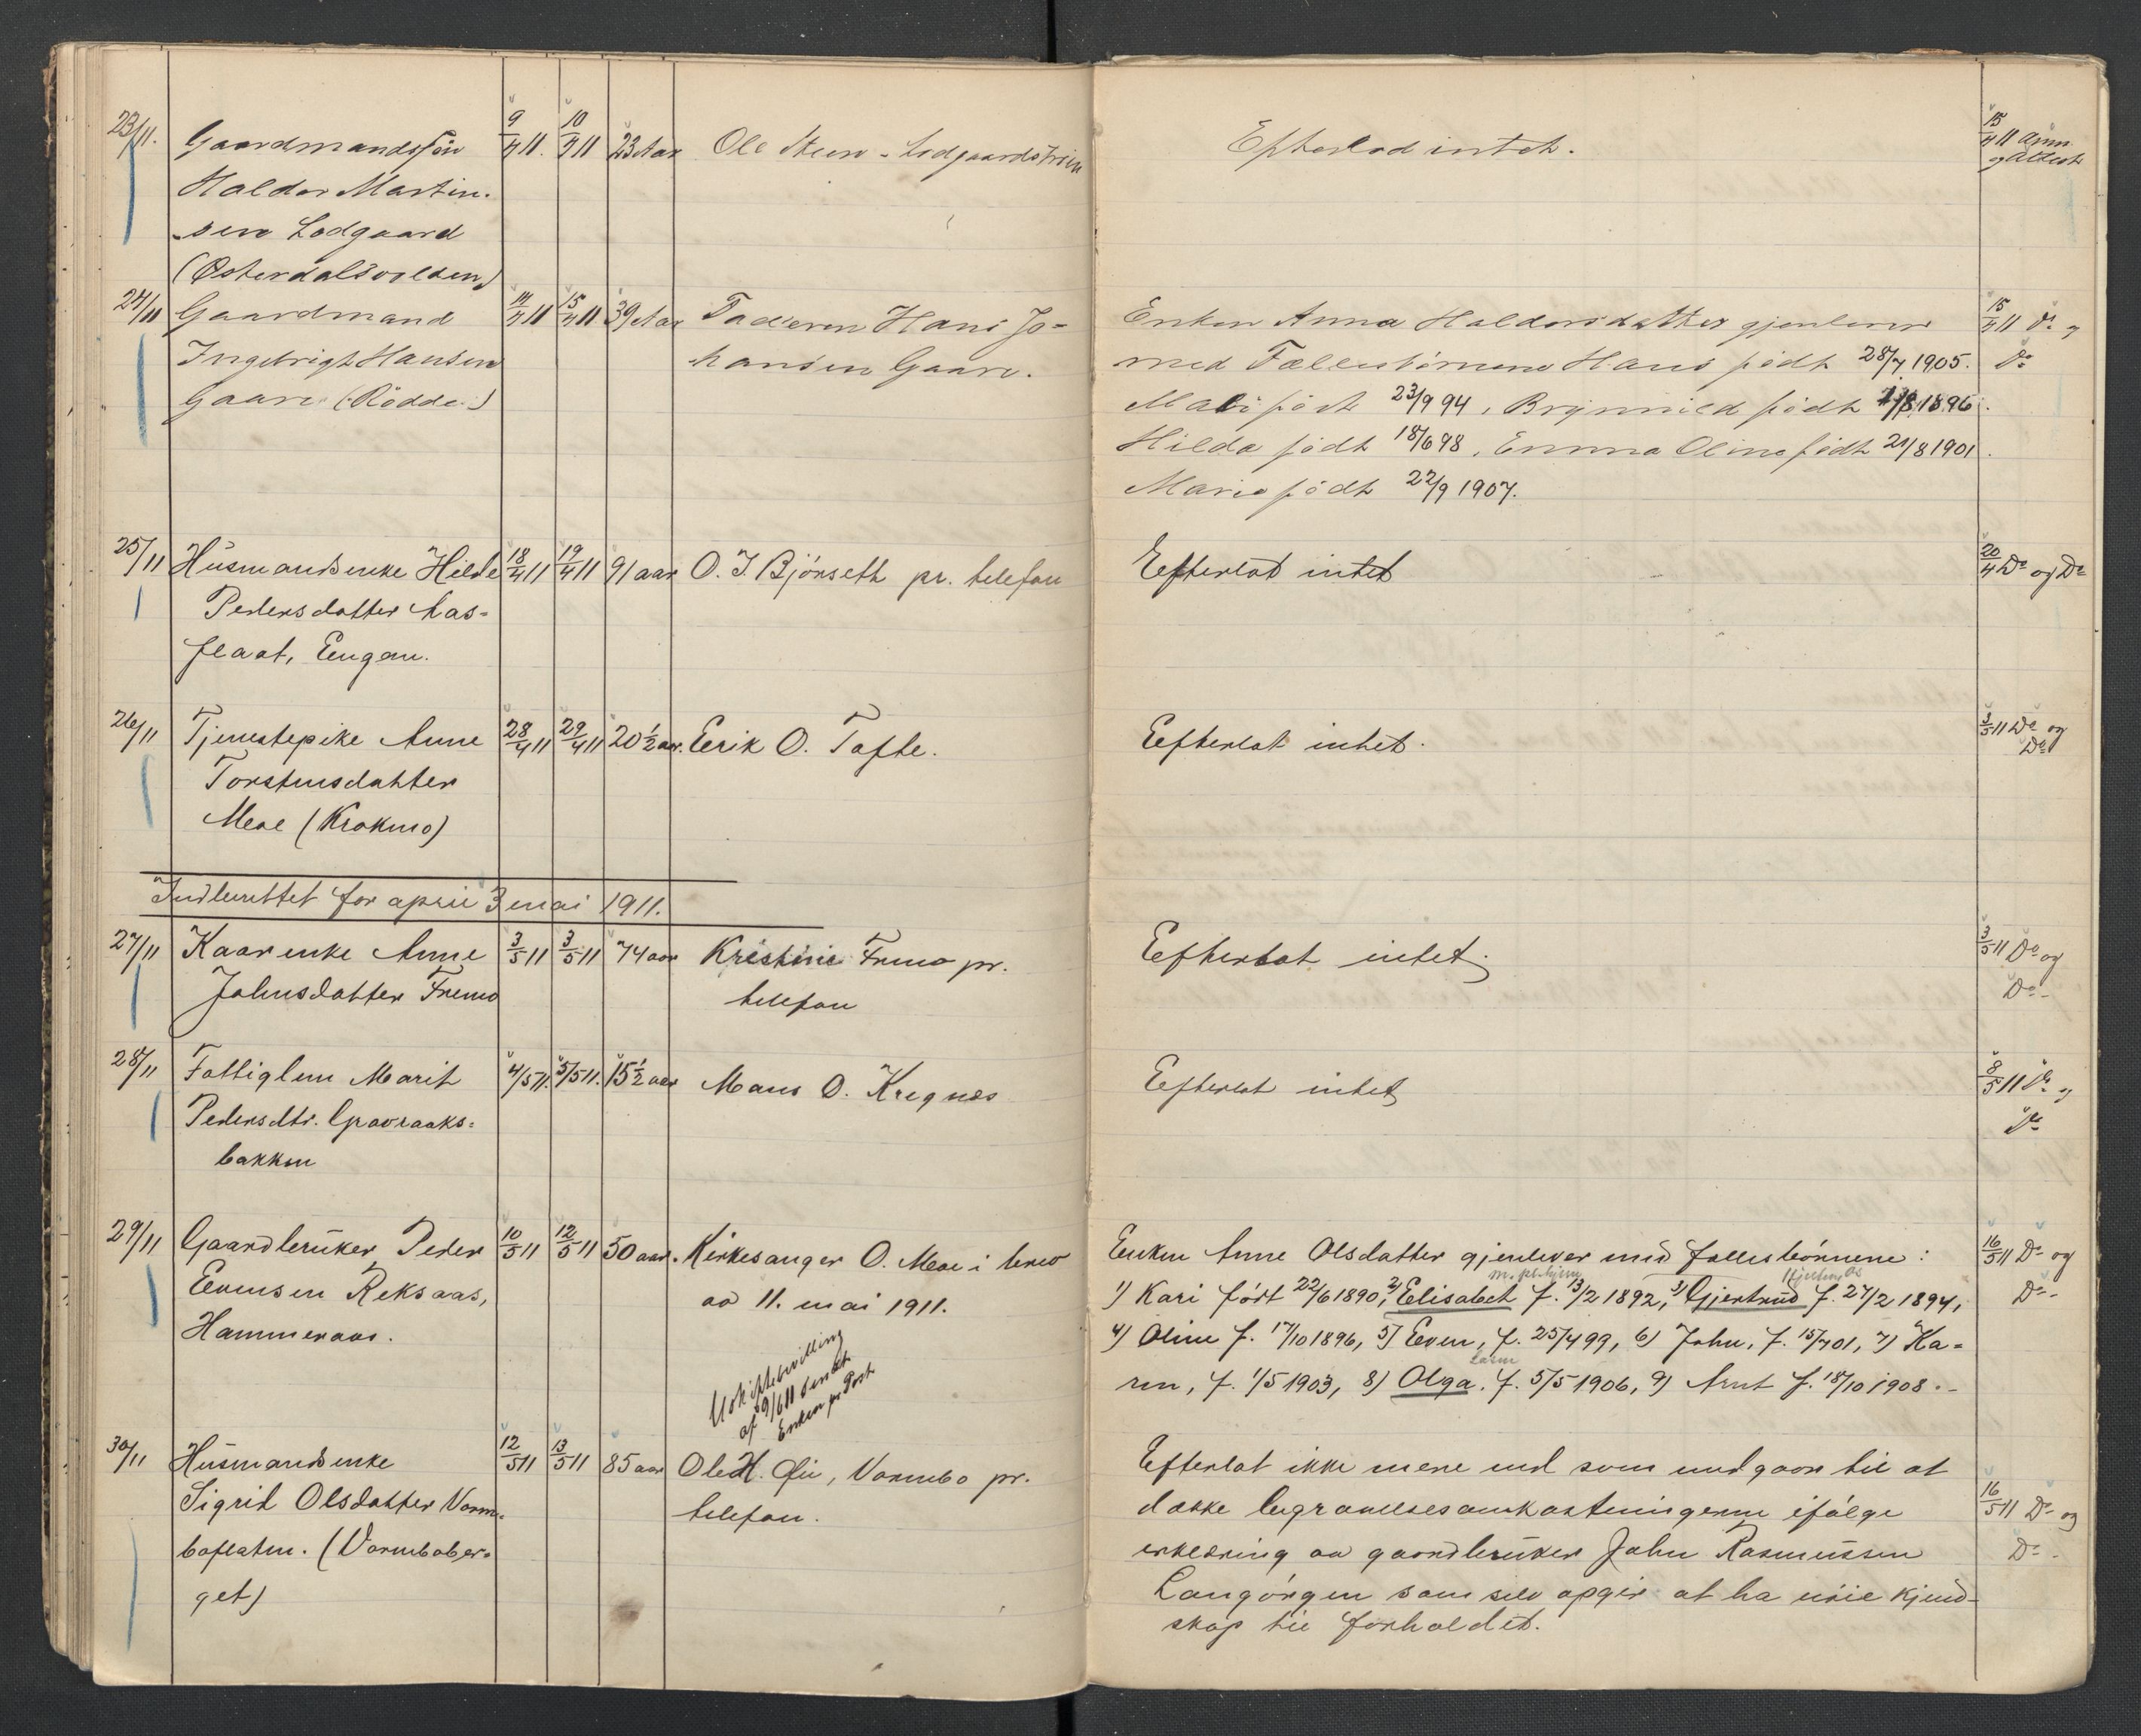 23/11. Gaardmandssøn 9/4 11. 10/4 11 23 Aar Ole Steen - Lodgaardstrøen Efterlod intet. 15/4 11 Anm.
Haldor Martin- og Attest
sen Lodgaard
(Østerdalsvolden)
24/11 Gaardmand 14/4 11 15/4 11 39 Aar Faderen Hans Jo= Enken Anna Haldorsdatter gjenlever 15/4 11 Do og
Ingebrigt Hansen hansen Gaare. med Fællesbørnene Hans født 28/7 1905. Do
Gaare (Rødde) Mali født 23/9 94, Brynnild født 1896.
Hilda født 18/6 98, Emma Oline født 21/8 1901.
Marie født 22/9 1907.
25/11 Husmandsenke Hilde 18/4 11 19/4 11 91 aar O. J. Bjørseth pr. telefon Efterlot intet 20/4 Do og Do
Pedersdatter Aas=
flaat, Engan.
26/11 Tjenestepike Anne 28/4 11 29/4 11 20 1/2 aar. Eerik O. Tofte. Efterlot intet. 3/5 11 Do og
Torstensdatter Do
Meae (Krokmo)
Indberettet for april 3 mai 1911.
27/11 Kaarenke Anne 3/5 11 3/5 11 74 aar Kristine Fremo pr. Efterlot intet. 3/5 11 Do og
Johnsdatter Fremo telefon Do-
28/11 Fattiglem Marit 4/5 11. 5/5 11. 15 1/2 aar Mans O. Kregnes Efterlot intet 8/5 11 Do og
Pedersdtr. Gravraaks= Do
bakken
29/11 Gaardbruker Peder 10/5 11 12/5 11 50 aar. Kirkesanger O. Meae i brev Enken Anne Olsdatter gjenlever med fællesbørnene: 16/5 11 Do og
Evensen Reksaas, av 11. mai 1911. 1) Kari født 22/6 1890, 2) Elisabet f. 13/2 1892, 3) Gjertrud f. 27/2 1894, Do-
Hammeraas. 4) Oline f. 17/10 1896, 5) Even, f. 25/4 99, 6) John, f. 15/7 01, 7) Ka=
ren, f. 1/5 1903, 8) Olga. f. 5/5 1906, 9) Arnt f. 18/10 1908.-
Uskiftebevilling
af 9/6 11 sendt
Enken pr. Post
30/11 Husmandsenke 12/5 11 13/5 11 85 aar Ole H. Øie, Vormbo pr. Efterlot ikke mere end som medgaar til at
Sigrid Olsdatter Vorm= telefon. dække begravelsesomkostningerne ifølge 16/5 11 Do og
boflaten. (Vormbober= erklæring av gaardbruker John Rasmussen Do-
get) Langørgen som selv opgir at ha nøie kjend-
skap til forholdet.